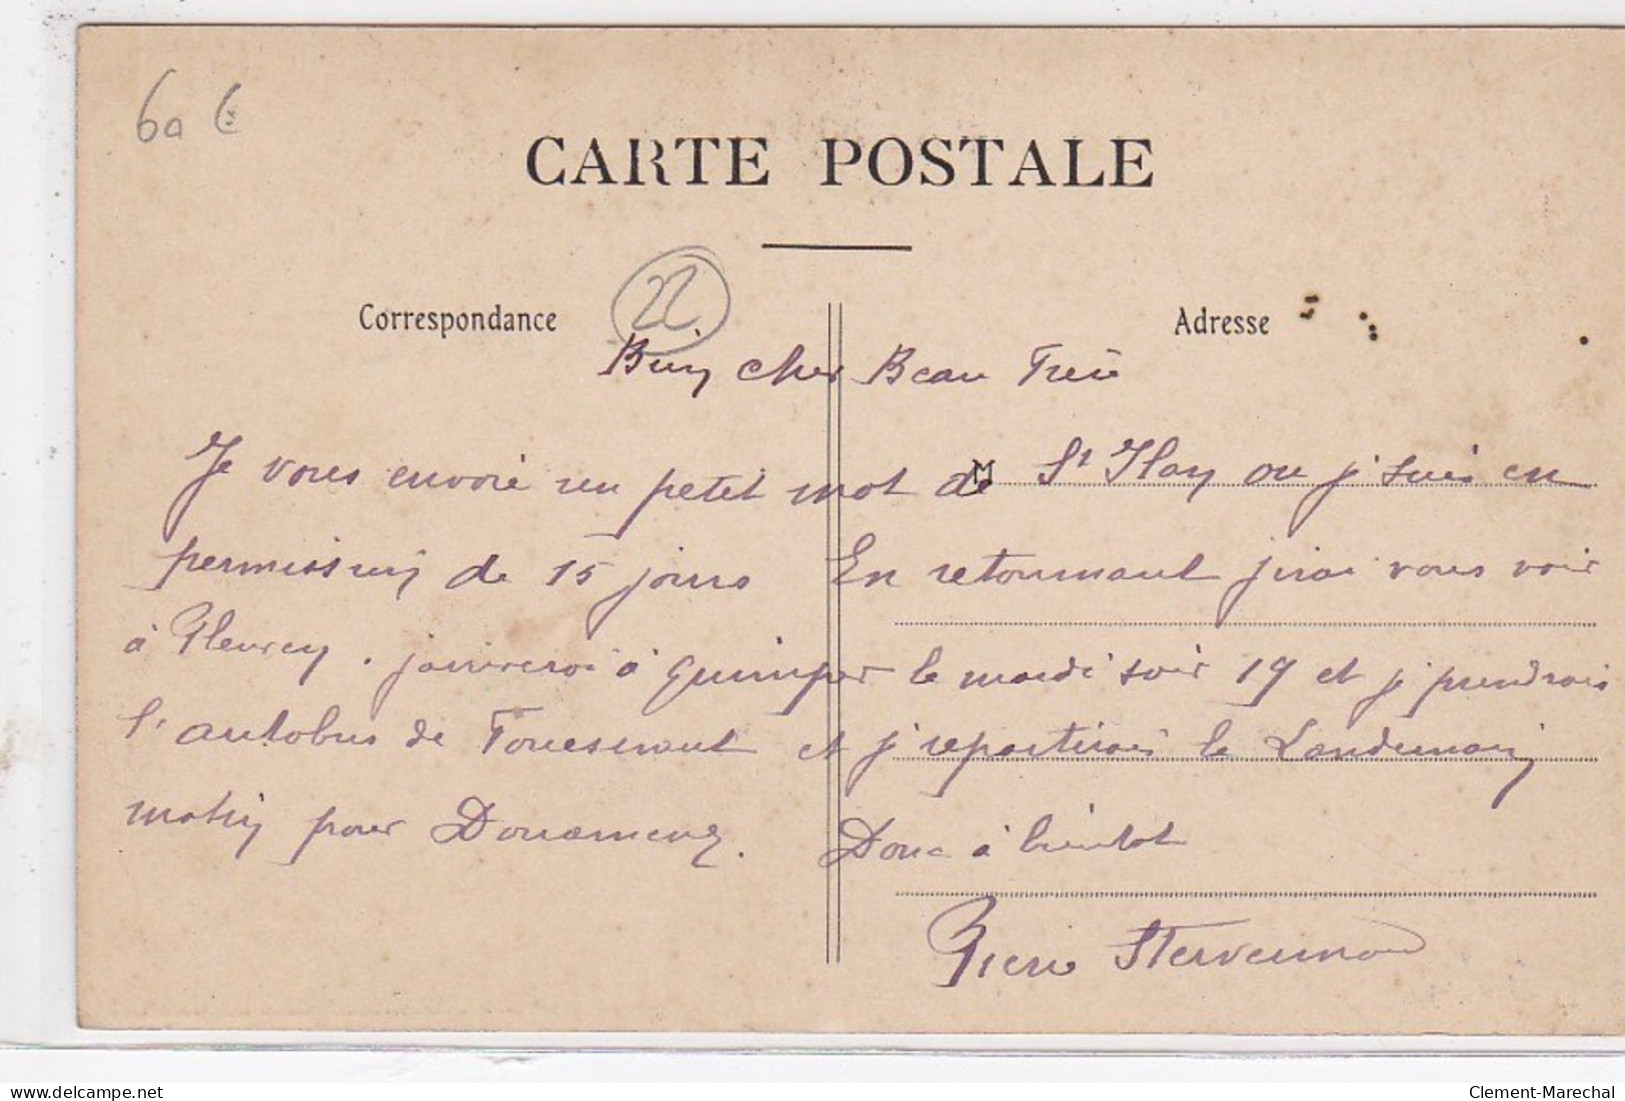 60 €
CARTE POSTALE
22
Correspondance
Adresse
Bien cher Beau Frère
Je vous envoie un petit mot de St Ilay ou j'suis en
permission de 15 jours En retournant j'irai vous voir
à Pleuven. j'arriverai à Quimper le mardi soir 19 et j'prendrais
l'autobus de Fouesnant et j'repartirais le Landemain
matin pour Douarnenez. Donc à bientot
Pierre
delcampe.net
Clement-Marechal